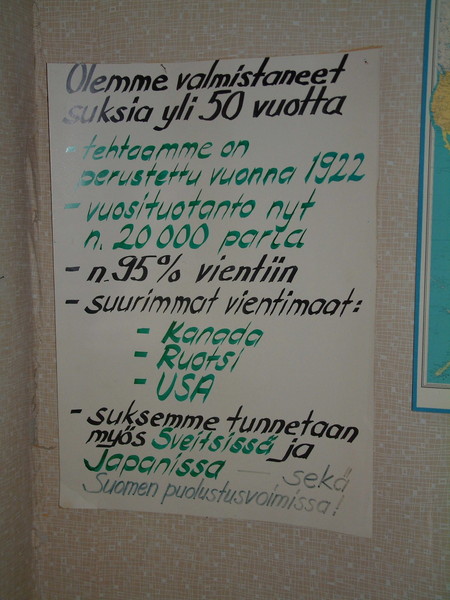 Olemme valmistaneet
suksia yli 50 vuotta
- tehtaamme on
perustettu vuonna 1922
- vuosituotanto nyt
n. 20 000 paria
- n. 95% vientiin
- suurimmat vientimaat:
- Kanada
- Ruotsi
- USA
- suksemme tunnetaan
myös Sveitsissä ja
Japanissa — sekä
Suomen puolustusvoimissa!